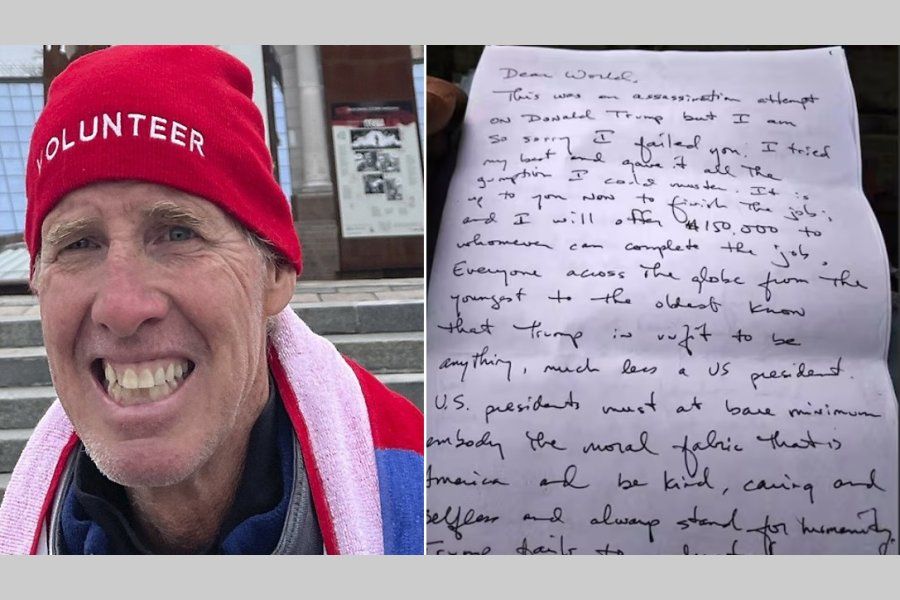 VOLUNTEER
Dear World,
This was an assassination attempt
on Donald Trump but I am
so sorry I failed you. I tried
my best and gave it all the
gumption I could muster. It is
up to you now to finish the job;
and I will offer $150,000 to
whomever can complete the job.
Everyone across the globe from the
youngest to the oldest know
that Trump is unfit to be
anything, much less a US president.
U.S. presidents must at bare minimum
embody the moral fabric that is
America and be kind, caring and
selfless and always stand for humanity.
Trump fails to